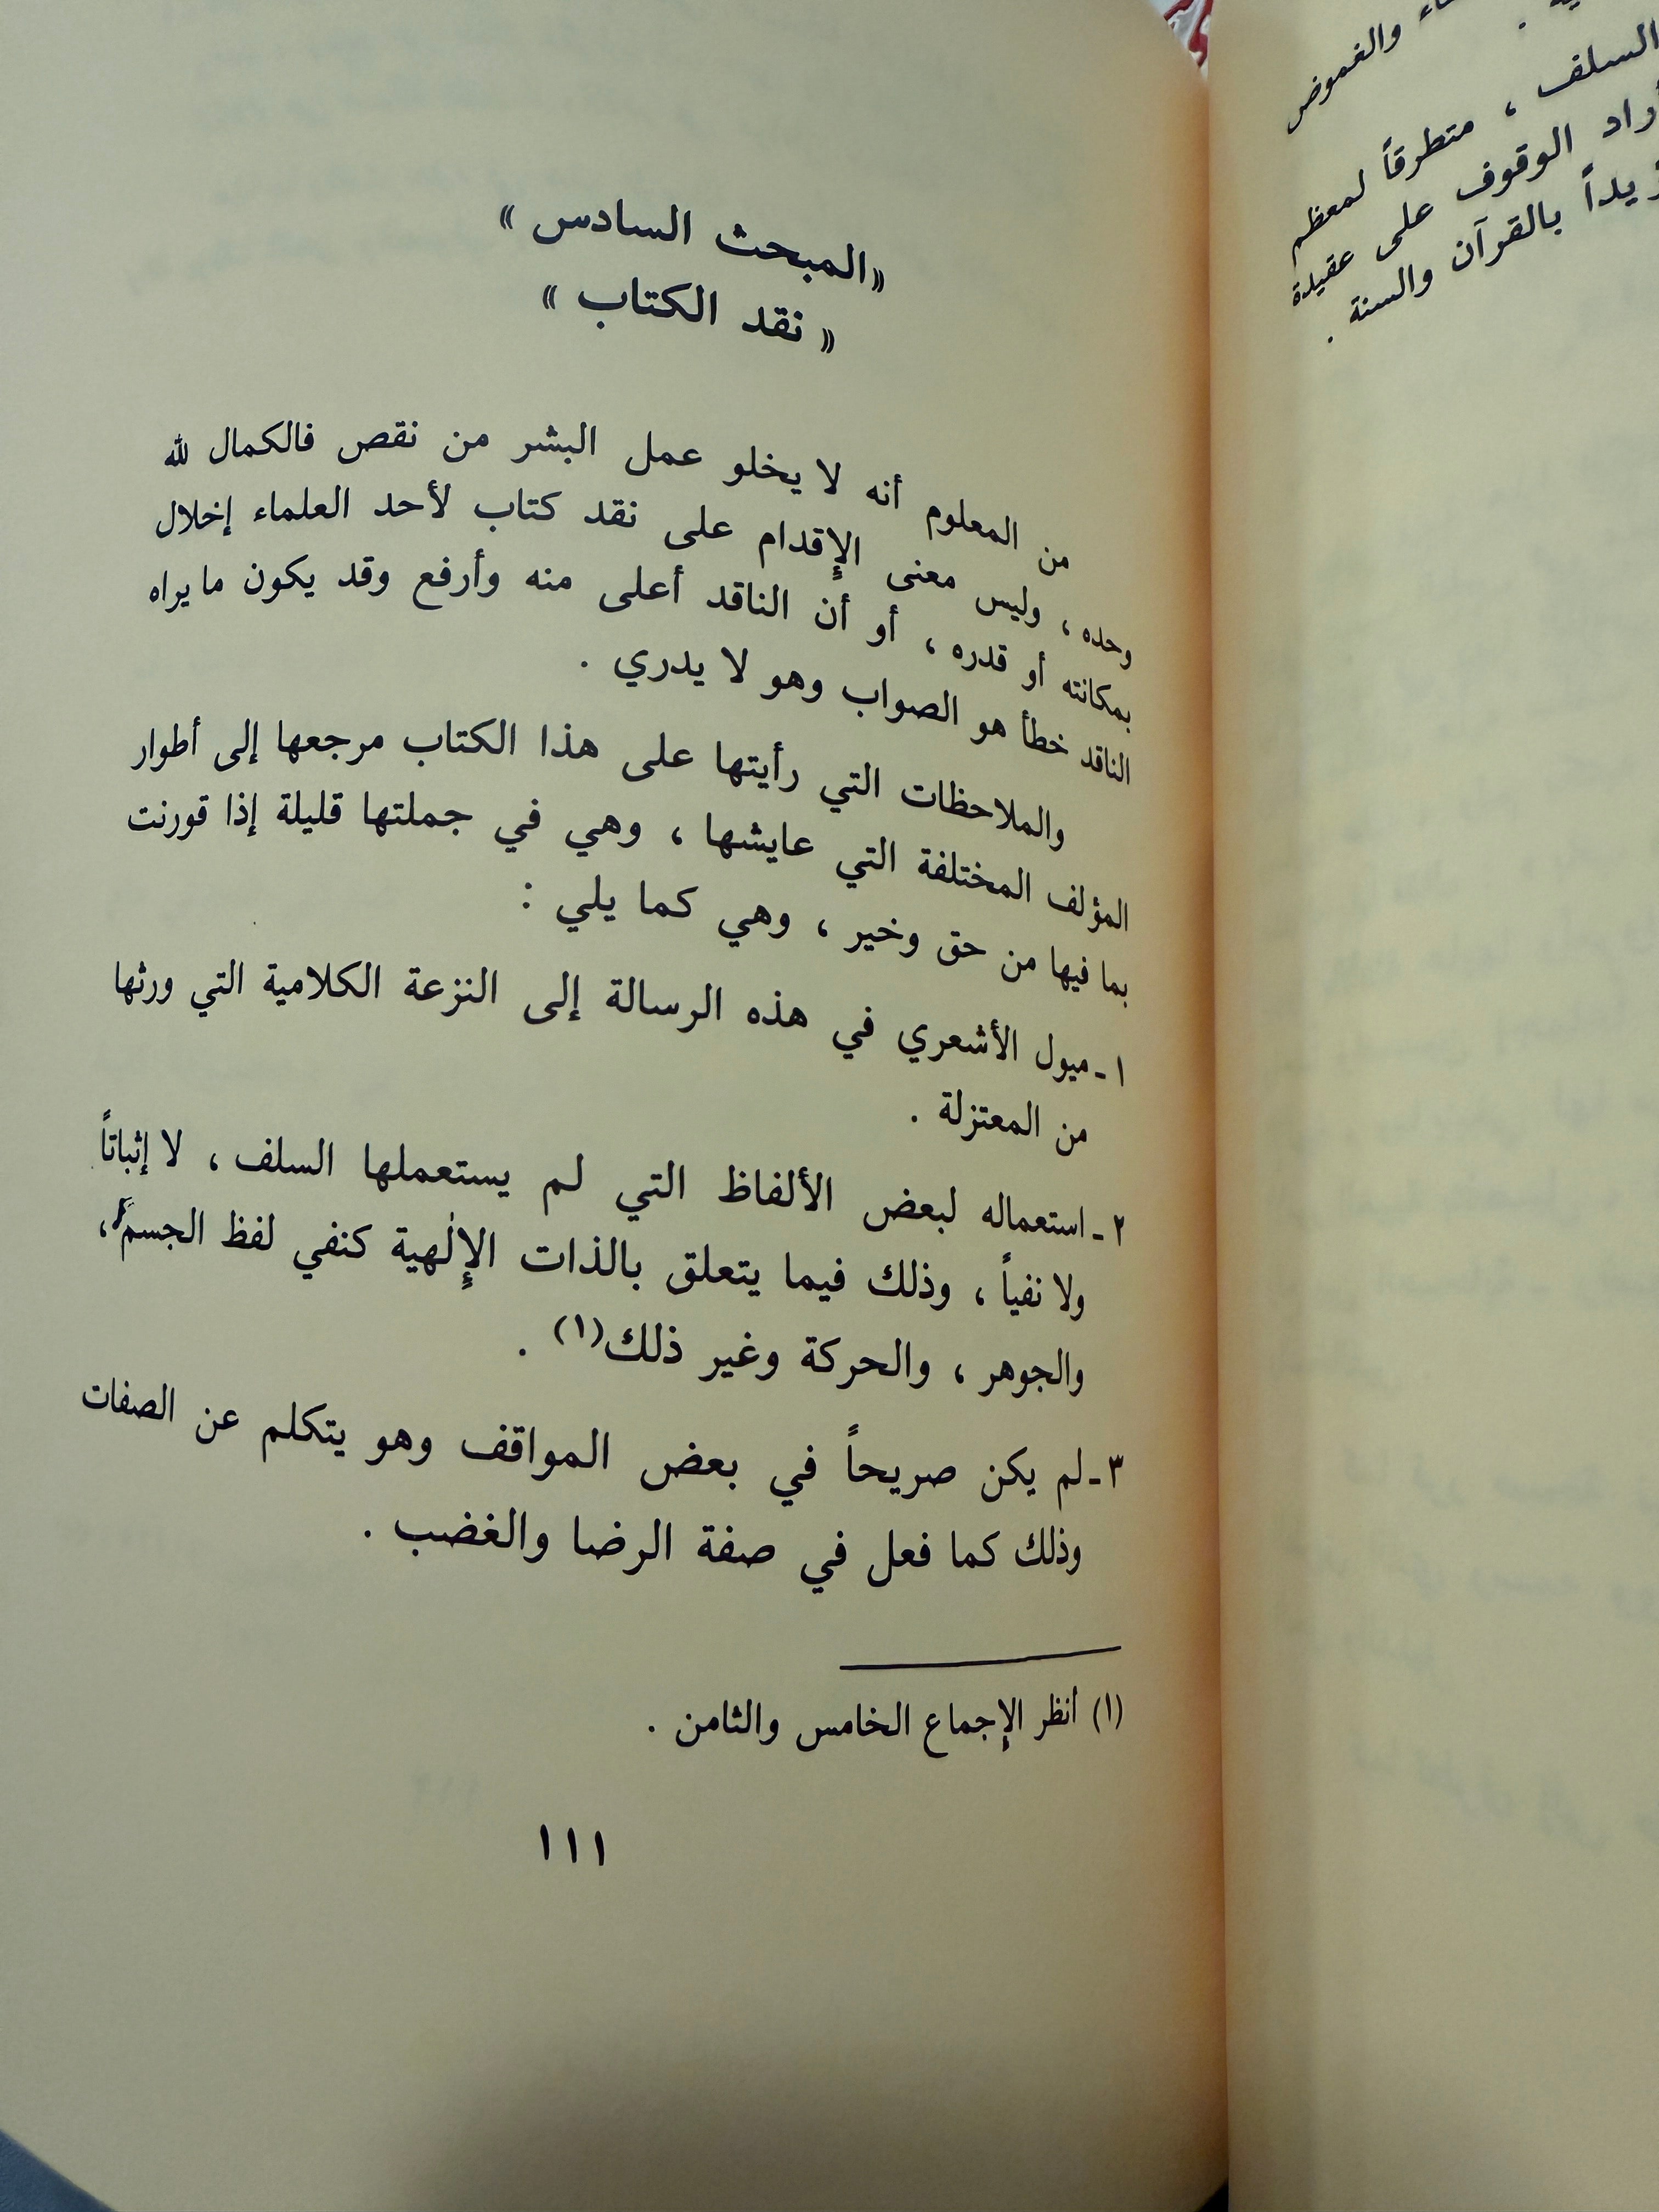 والغموض
السلف ، متطرقاً لمعظم
أراد الوقوف على عقيدة
بالقرآن والسنة .
«المبحث السادس »
« نقد الكتاب »
من المعلوم أنه لا يخلو عمل البشر من نقص فالكمال لله
وحده ، وليس معنى الإقدام على نقد كتاب لأحد العلماء إخلال
بمكانته أو قدره ، أو أن الناقد أعلى منه وأرفع وقد يكون ما يراه
الناقد خطأ هو الصواب وهو لا يدري .
والملاحظات التي رأيتها على هذا الكتاب مرجعها إلى أطوار
المؤلف المختلفة التي عايشها ، وهي في جملتها قليلة إذا قورنت
بما فيها من حق وخير ، وهي كما يلي :
١ - ميول الأشعري في هذه الرسالة إلى النزعة الكلامية التي ورثها
من المعتزلة .
٢ - استعماله لبعض الألفاظ التي لم يستعملها السلف ، لا إثباتاً
ولا نفياً ، وذلك فيما يتعلق بالذات الإلٰهية كنفي لفظ الجسم ،
والجوهر ، والحركة وغير ذلك(١) .
٣ - لم يكن صريحاً في بعض المواقف وهو يتكلم عن الصفات
وذلك كما فعل في صفة الرضا والغضب .
(١) أنظر الإجماع الخامس والثامن .
١١١